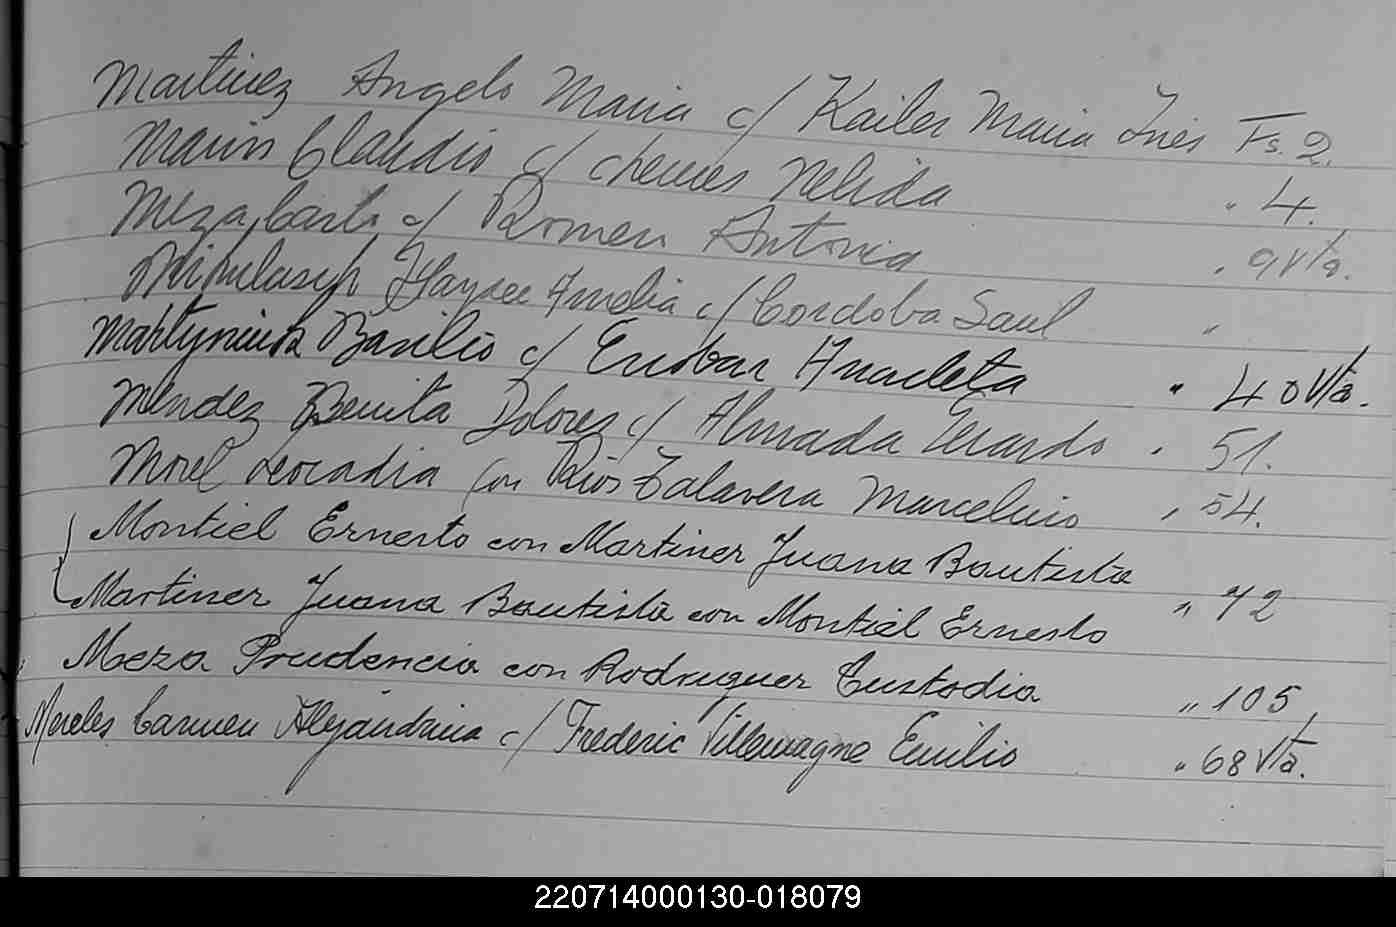 Martinez Angelo Maria c/ Kailer Maria Ines Fs. 2.
Marin Claudio c/ chemes Nelida " 4.
Meza, Carlos c/ Romero Antonia " 9 vta.
Haydee Amelia c/ Cordoba Saul "
Martyniuk Basilio c/ Escobar Anacleta " 40 Vta.
Mendez Benita Dolores c/ Almada Gerardo " 51.
Morel Leocadia con Rios Talavera Marcelino " 54.
Montiel Ernesto con Martinez Juana Bautista
Martinez Juana Bautista con Montiel Ernesto " 72
Meza Prudencia con Rodriguez Custodia " 105,
Mereles Carmen Alejandrina c/ Frederic Villemagne Emilio " 68 Vta.
220714000130-018079